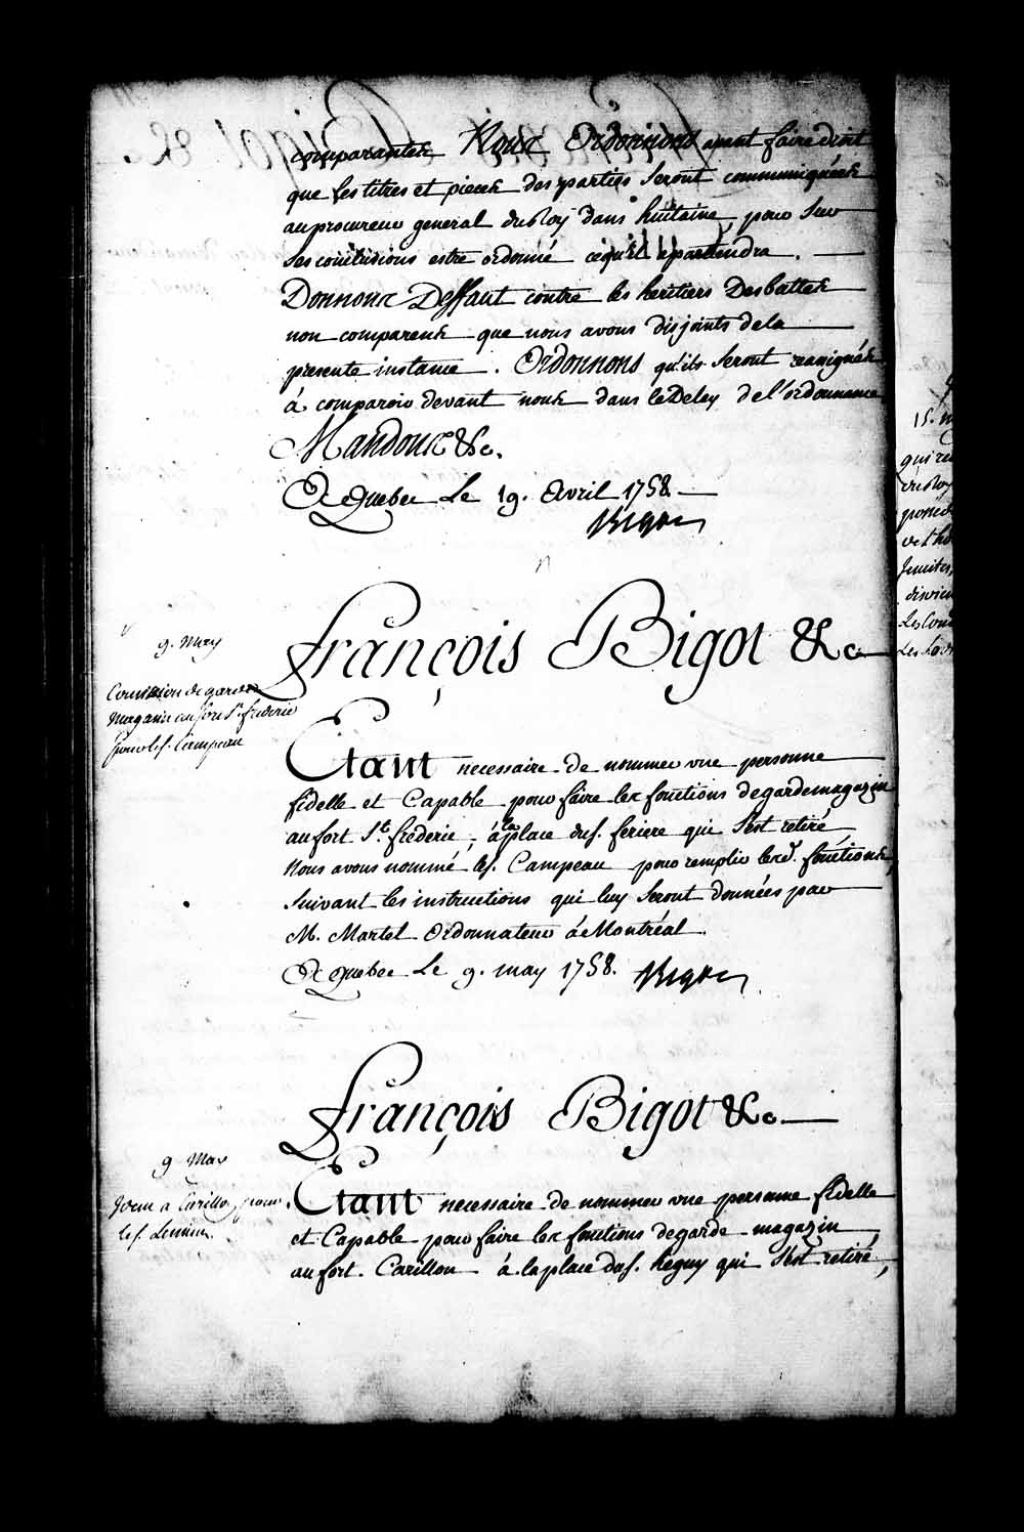 comparantes Nous Ordonnons avant faire droit
que les titres et pieces des parties Seront communiquées
au procureur general du Roy dans huitaine, pour Sur
Ses conclusions estre ordonné ce qu'il apartiendra.
Donnons Deffaut contre les heritiers Desbattes
non comparens que nous avons disjoints de la
presente instance. Ordonnons qu'ils Seront reassignés
á comparoir devant nous dans le Delay de l'ordonnance
Mandons &c.
A Quebec Le 19. Avril 1758
Bigot
François Bigot &c
9. May
Commission de garde
Magasin au fort St. frederic
pour le s. Campeau
Etant necessaire de nommer une personne
fidelle et Capable pour faire les fonctions de garde magazin
au fort St. frederic, á la place du s. feriere qui S'est retiré
Nous avons nommé le s. Campeau pour remplir les d. fonctions,
Suivant les instructions qui luy Seront données par
M. Martel Ordonnateur á Montréal
A Quebec Le 9. may 1758. Bigot
François Bigot &c
9. May
Idem a Carillon pour
le s.
Etant necessaire de nommer une personne fidelle
et Capable pour faire les fonctions de garde magazin
au fort Carillon á la place du s. heguy qui S'est retiré,
15.
qui
du Roy
de l'ho
Jesuites,
Les Cons